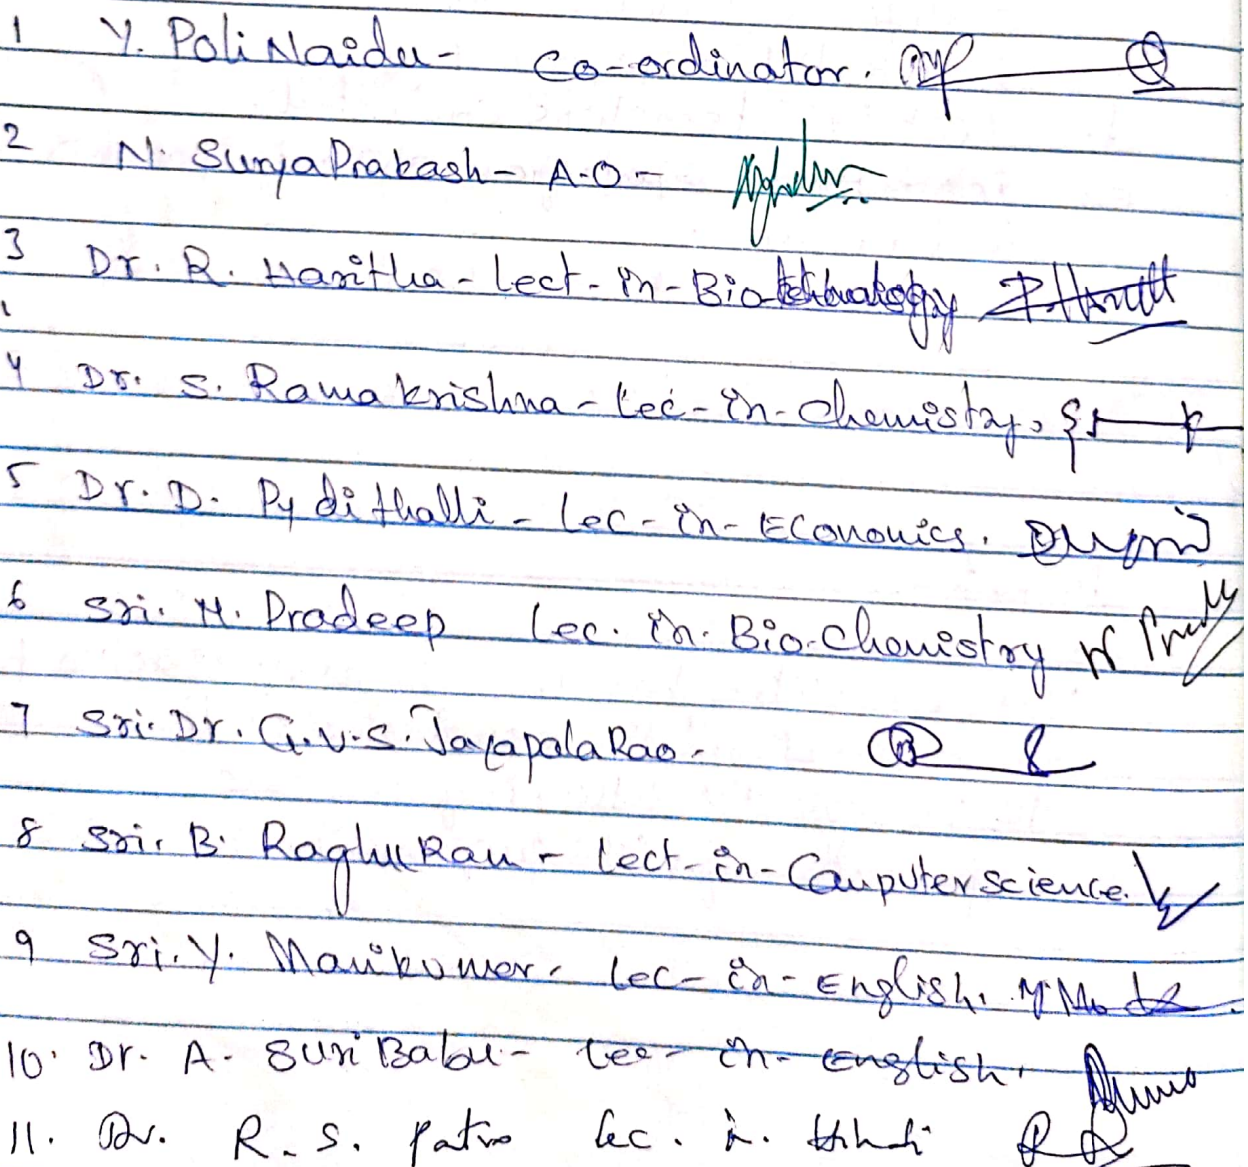 1 Y. Poli Naidu - Co-ordinator.
2 N. Surya Prakash - A.O -
3 Dr. R. Haritha - Lect - in - Biotechnology
4 Dr. S. Rama krishna - Lec - in - chemistry,
5 Dr. D. Pydithalli - Lec - in - Economics.
6 Sri. M. Pradeep Lec. in. Bio-Chemistry
7 Sri. Dr. G.V.S. Jayapala Rao -
8 Sri. B. Raghu Ram - Lect - in - Computer Science.
9 Sri. Y. Manikumar - Lec - in - English.
10. Dr. A. Suri Babu - Lec - in - English.
11. Dr. R. S. Patro Lec. in. Hindi